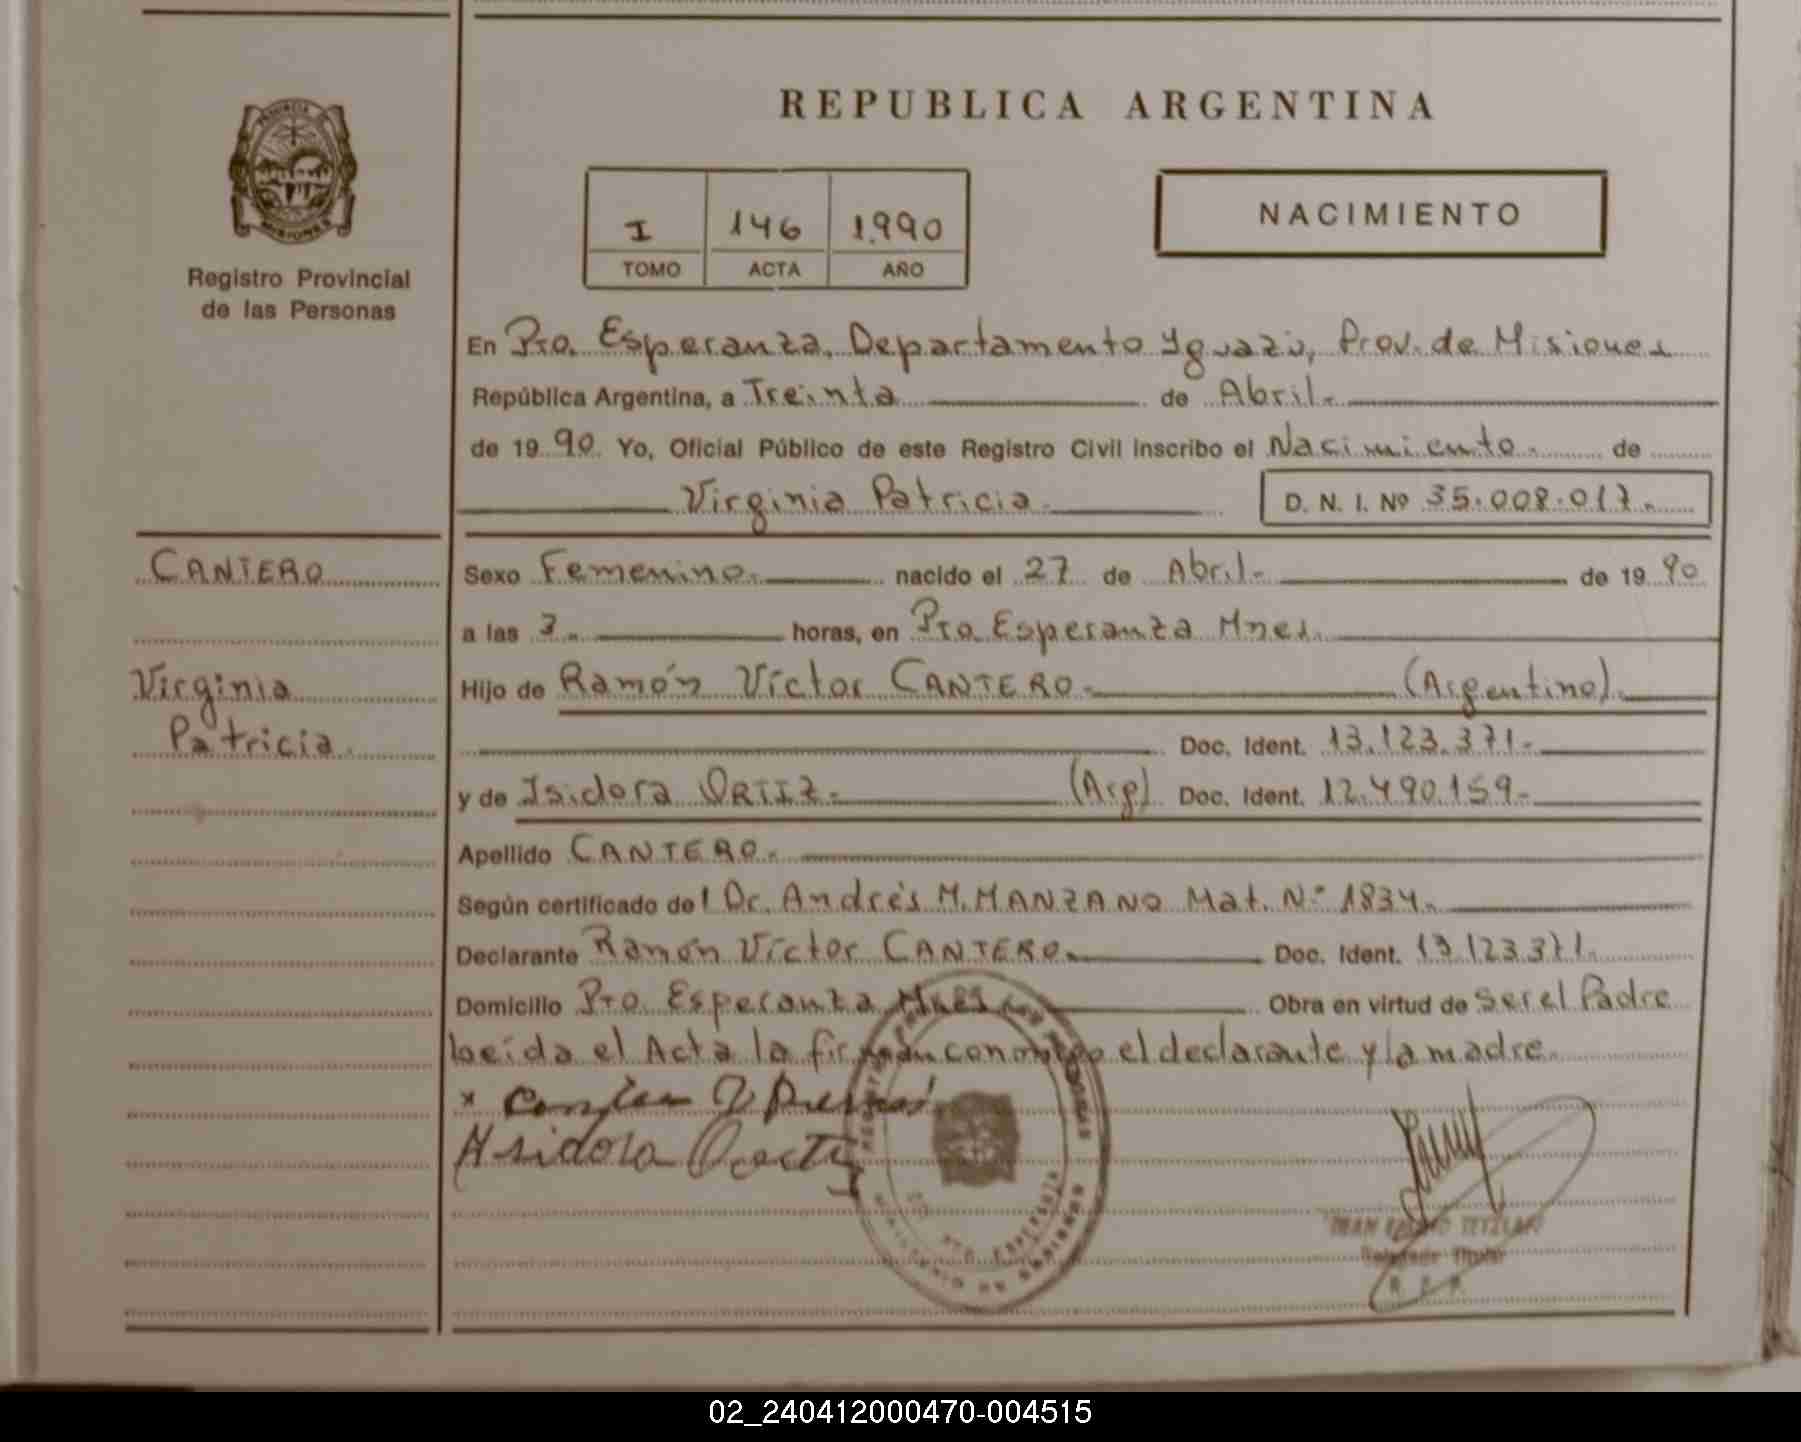 REPUBLICA ARGENTINA
PROVINCIA
MISIONES
Registro Provincial
de las Personas
I 146 1.990
TOMO ACTA AÑO
NACIMIENTO
En Pto. Esperanza, Departamento Yguazú, Prov. de Misiones
República Argentina, a Treinta de Abril.-
de 19 90 Yo, Oficial Público de este Registro Civil inscribo el Nacimiento.- de
Virginia Patricia.- D. N. I. Nº 35.008.017.-
CANTERO
Virginia
Patricia.
Sexo Femenino.- nacido el 27 de Abril.- de 19 90
a las 3.- horas, en Pto. Esperanza Mnes.
Hijo de Ramón Víctor CANTERO.- (Argentino).-
Doc. Ident. 13.123.371.-
y de Isidora ORTIZ.- (Arg) Doc. Ident. 12.490.159.-
Apellido CANTERO.-
Según certificado del Dr. Andrés M. MANZANO Mat. Nº 1834.-
Declarante Ramón Víctor CANTERO.- Doc. Ident. 13.123.371.-
Domicilio Pto. Esperanza Mnes Obra en virtud de ser el Padre
Leída el Acta la firman conmigo el declarante y la madre.
Isidora
PTO. ESPERANZA
MINISTERIO DE GOBIERNO
Delegado Titular
R. P. P.
02_240412000470-004515